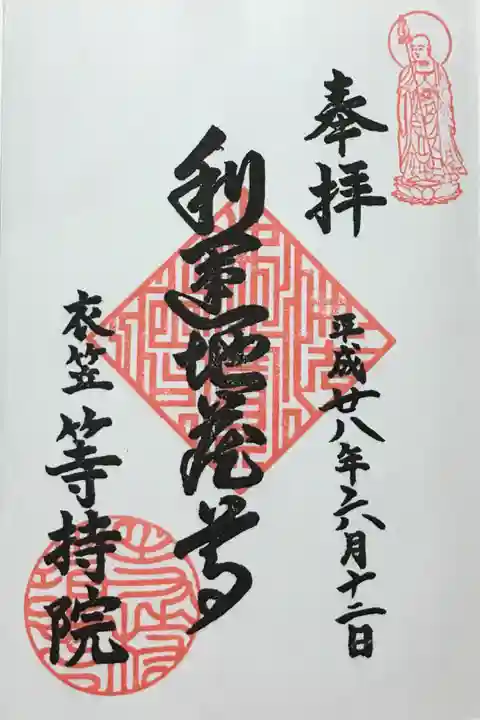 奉拝
平成廿八年六月十二日
利運地蔵尊
衣笠 等持院